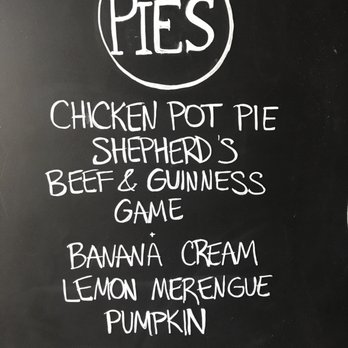 PIES
CHICKEN POT PIE
SHEPHERD'S
BEEF & GUINNESS
GAME
+
BANANA CREAM
LEMON MERENGUE
PUMPKIN